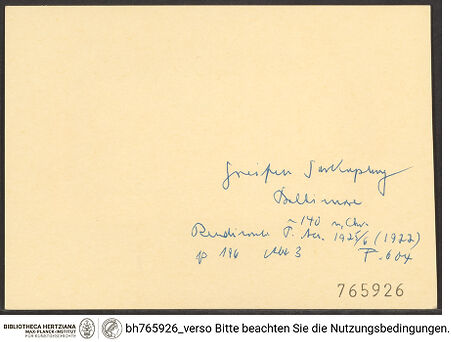 Greifen Sarkophag
Baltimore
~ 140 n. Chr.
Rendiconti P. Acc. 1925/6 (1927)
p 196 Abb 3 T. 604
765926
BIBLIOTHECA HERTZIANA
MAX-PLANCK-INSTITUT
FÜR KUNSTGESCHICHTE
bh765926_verso Bitte beachten Sie die Nutzungsbedingungen.